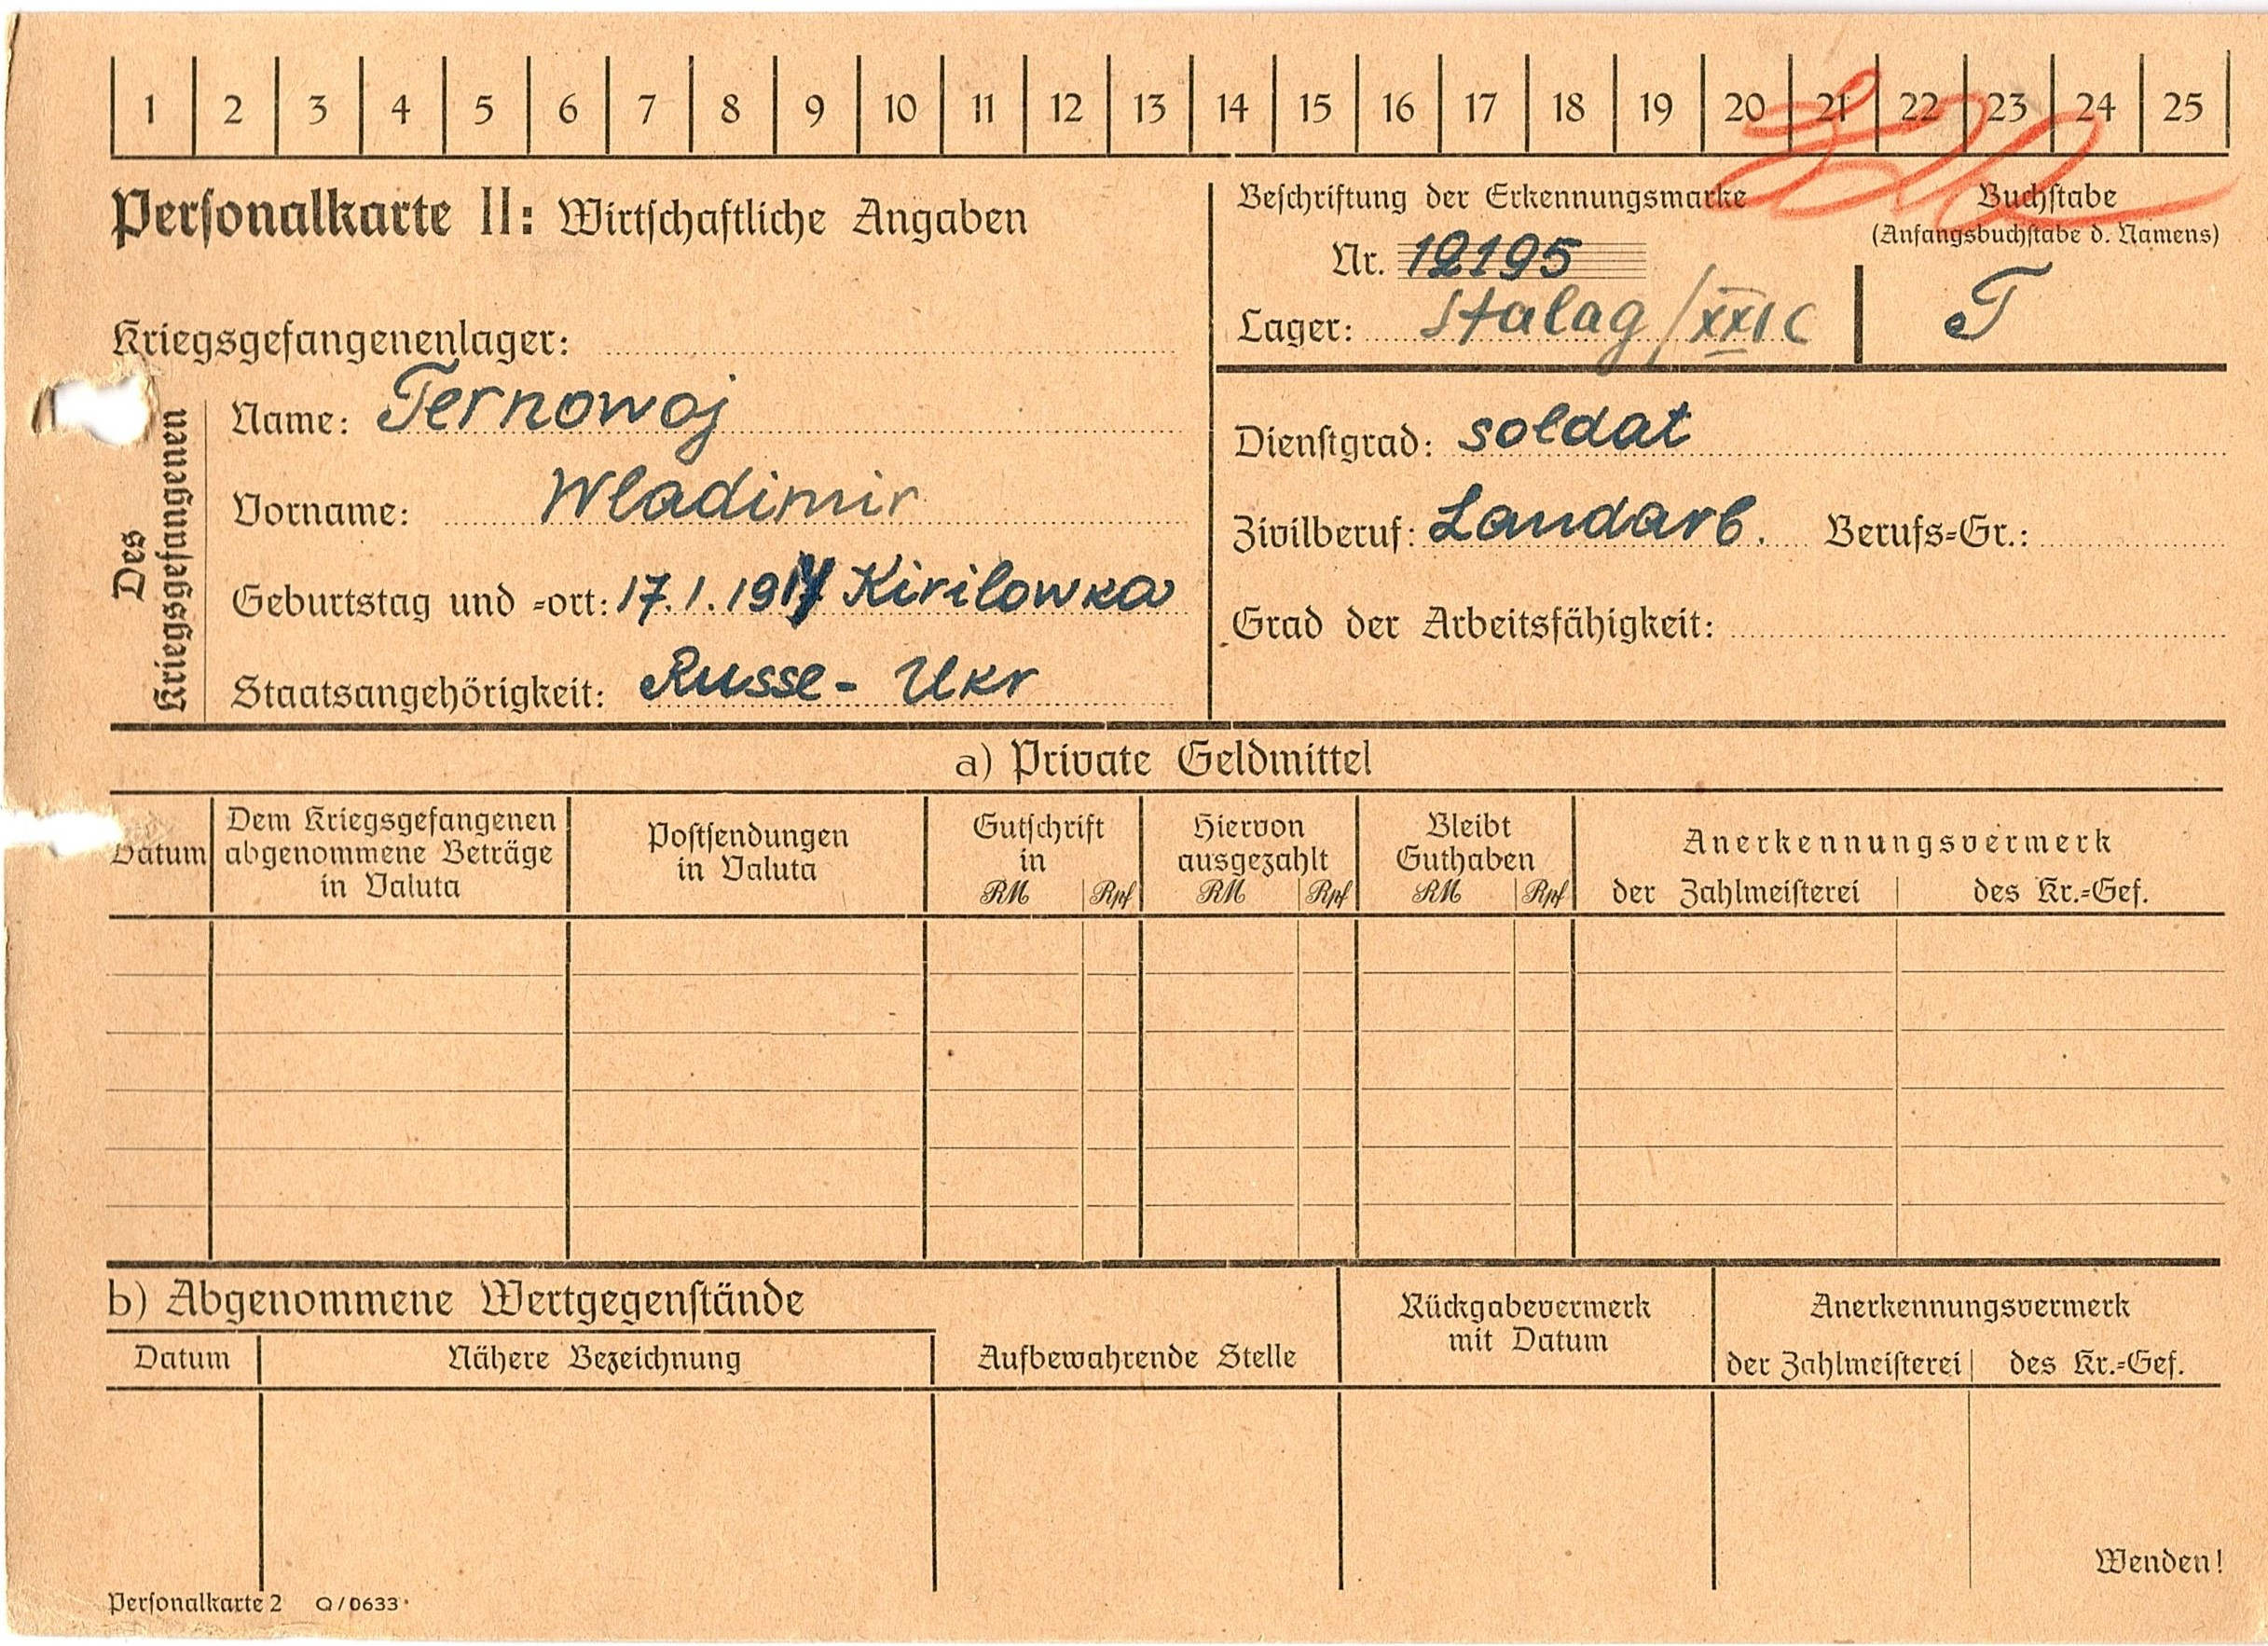 1 2 3 4 5 6 7 8 9 10 11 12 13 14 15 16 17 18 19 20 21 22 23 24 25
Personalkarte II: Wirtschaftliche Angaben
Beschriftung der Erkennungsmarke
Nr. 12195
Lager: Stalag / XXI C
Buchstabe
(Anfangsbuchstabe d. Namens)
T
Kriegsgefangenenlager:
Des
Kriegsgefangenen
Name: Ternowoj
Vorname: Wladimir
Geburtstag und =ort: 17.1.191 Kirilowka
Staatsangehörigkeit: Russe- Ukr
Dienstgrad: soldat
Zivilberuf: Landarb. Berufs=Gr.:
Grad der Arbeitsfähigkeit:
a) Private Geldmittel
Datum
Dem Kriegsgefangenen
abgenommene Beträge
in Valuta
Postsendungen
in Valuta
Gutschrift
in
RM Rpf
Hiervon
ausgezahlt
RM Rpf
Bleibt
Guthaben
RM Rpf
Anerkennungsvermerk
der Zahlmeisterei des Kr.=Gef.
b) Abgenommene Wertgegenstände
Datum Nähere Bezeichnung
Aufbewahrende Stelle
Rückgabevermerk
mit Datum
Anerkennungsvermerk
der Zahlmeisterei des Kr.=Gef.
Wenden!
Personalkarte 2 Q/0633